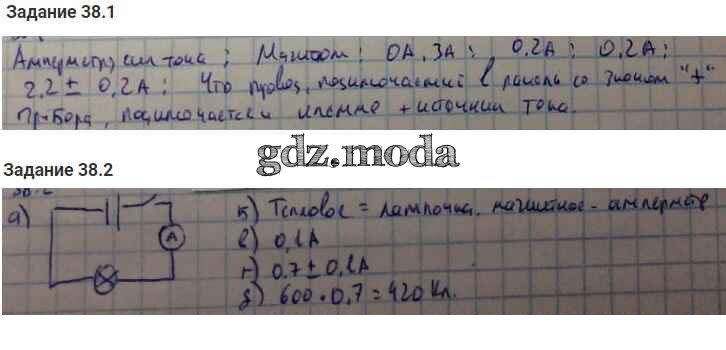 Задание 38.1
Амперметр, сила тока; Магнитом; 0А, 3А; 0,2А; 0,2А;
2,2 ± 0,2А; Что провод, подключаемый к со знаком "+"
прибора, подключается к клемме + источника тока.
gdz.moda
Задание 38.2
а)
А
б) Тепловое = лампочка, магнитное - амперметр
в) 0,1А
г) 0.7 ± 0,1А
д) 600 · 0,7 = 420 Кл.